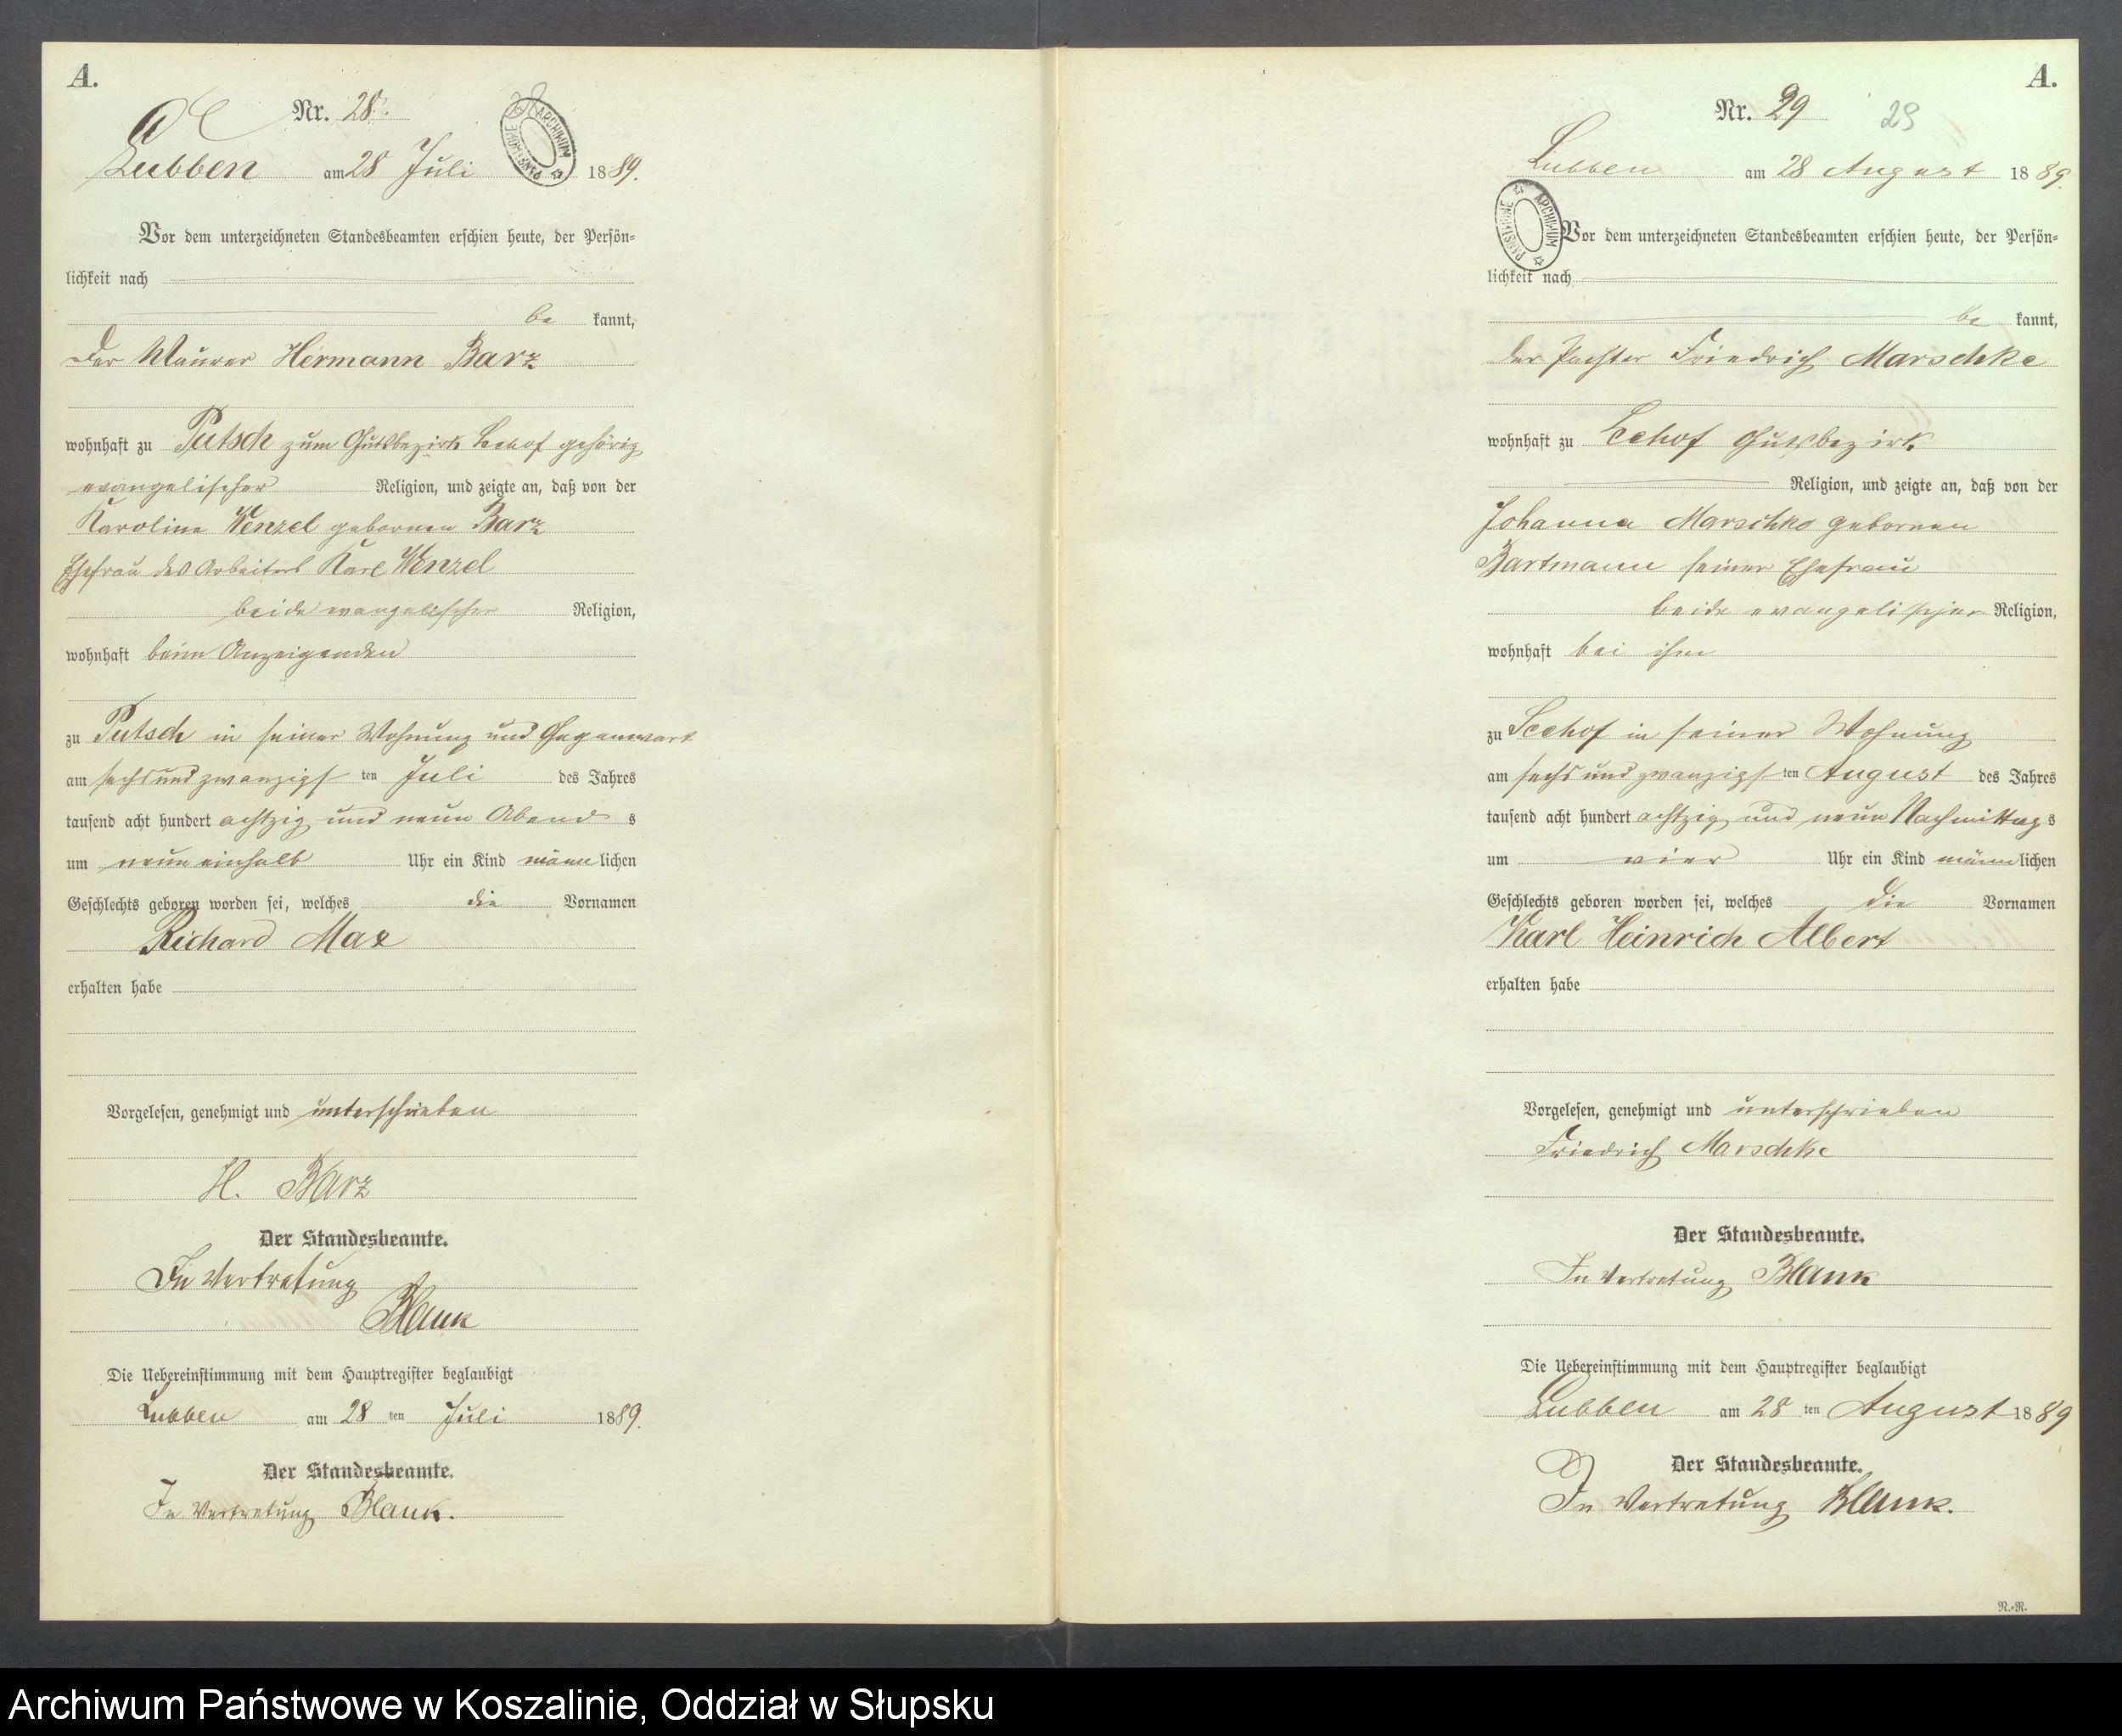 A.
Nr. 28.
28
ARCHIWUM PAŃSTWOWE
Lubben am 28 Juli 1889.
Vor dem unterzeichneten Standesbeamten erschien heute, der Persön-
lichkeit nach
be kannt,
Der Maurer Hermann Barz
wohnhaft zu Putsch zum Gutsbezirk Seehof gehörig
evangelischer Religion, und zeigte an, daß von der
Karoline Wenzel gebornen Barz
Ehefrau des Arbeiters Karl Wenzel
beide evangelischer Religion,
wohnhaft beim Anzeigenden
zu Putsch in seiner Wohnung und Gegenwart
am sechsundzwanzigs ten Juli des Jahres
tausend acht hundert achtzig und neun Abend s
um neun einhalb Uhr ein Kind männ lichen
Geschlechts geboren worden sei, welches die Vornamen
Richard Max
erhalten habe
Vorgelesen, genehmigt und unterschrieben
H. Barz
Der Standesbeamte.
In Vertretung
Blank
Die Uebereinstimmung mit dem Hauptregister beglaubigt
Lubben am 28 ten Juli 1889.
Der Standesbeamte.
In Vertretung Blank.
A.
Nr. 29
29
Lubben am 28 August 1889.
ARCHIWUM PAŃSTWOWE
Vor dem unterzeichneten Standesbeamten erschien heute, der Persön-
lichkeit nach
be kannt,
der Pachter Friedrich Marschke
wohnhaft zu Seehof Gutsbezirk
Religion, und zeigte an, daß von der
Johanna Marschke gebornen
Bartmann seiner Ehefrau
beide evangelischer Religion,
wohnhaft bei ihm
zu Seehof in seiner Wohnung
am sechs und zwanzigs ten August des Jahres
tausend acht hundert achtzig und neun Nachmittag s
um vier Uhr ein Kind männ lichen
Geschlechts geboren worden sei, welches die Vornamen
Karl Heinrich Albert
erhalten habe
Vorgelesen, genehmigt und unterschrieben
Friedrich Marschke
Der Standesbeamte.
In Vertretung Blank
Die Uebereinstimmung mit dem Hauptregister beglaubigt
Lubben am 28 ten August 1889
Der Standesbeamte.
In Vertretung Blank.
N.-N.
Archiwum Państwowe w Koszalinie, Oddział w Słupsku